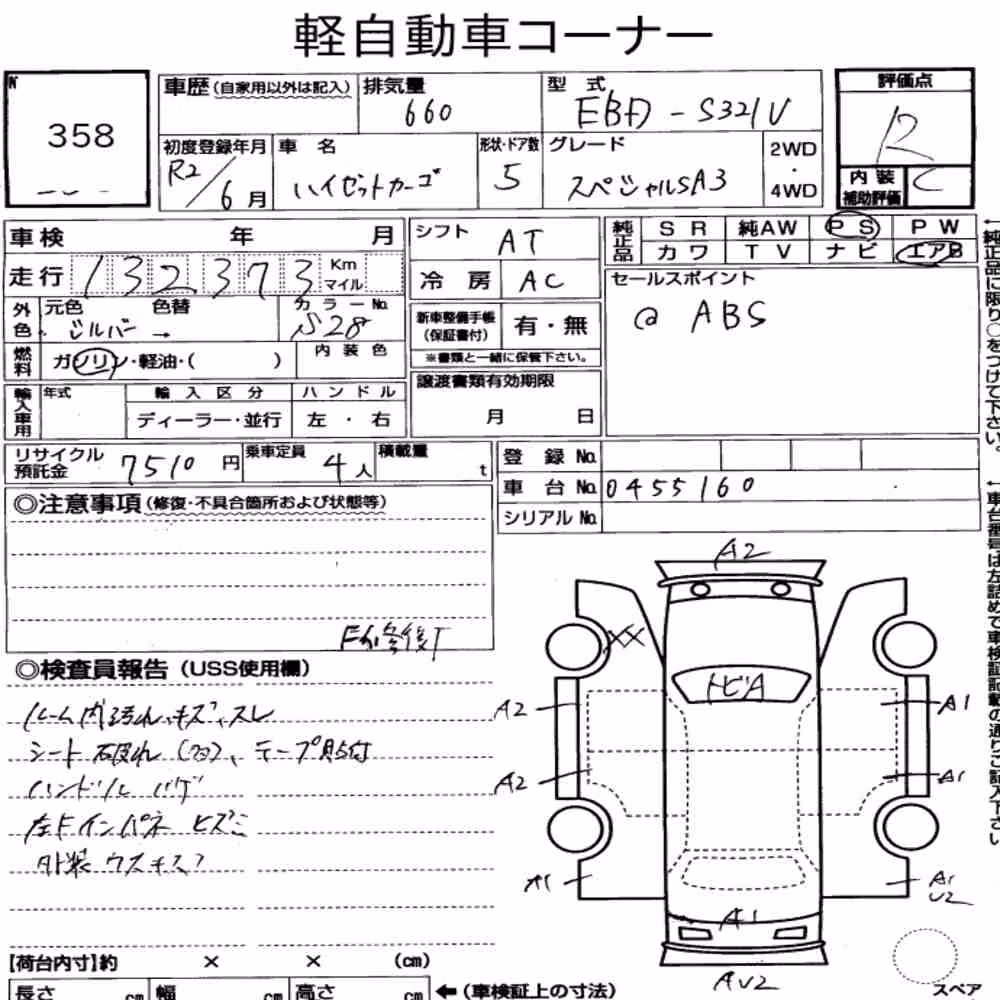 軽自動車コーナー
N 358
車歴(自家用以外は記入) 排気量 660 型式 EBD-S321V
評価点 R
内装補助評価 C
初度登録年月 R2/6月 車名 ハイゼットカーゴ 形状・ドア数 5 グレード スペシャルSA3 2WD・4WD
車検 年 月
走行 132,373 Km マイル
外色 元色 シルバー 色替 → カラーNo. S28
燃料 ガソリン・軽油・( ) 内装色
輸入車用 年式 輸入区分 ディーラー・並行 ハンドル 左・右
シフト AT
冷房 AC
新車整備手帳(保証書付) 有・無
※書類と一緒に保管下さい。
譲渡書類有効期限
月 日
純正品 SR 純AW PS PW
カワ TV ナビ エアB
セールスポイント
@ ABS
←純正品に限り○をつけて下さい。
リサイクル預託金 7510円 乗車定員 4人 積載量 t
登録No.
車台No. 0455160
シリアルNo.
←車台番号は左詰めで車検証記載の通りご記入下さい
◎注意事項(修復・不具合箇所および状態等)
◎検査員報告(USS使用欄)
ルーム内汚れ、キズ、スレ
シート破れ(穴)、テープ貼付
ハンドルハゲ
左Fインパネ ヒズミ
外装ウスキズ
A2
XX
トビA
A2 A1
A2 A1
A1 A1
U2
A1
AU2
スペア
【荷台内寸】約 × × (cm)
長さ cm 幅 cm 高さ cm ←(車検証上の寸法)